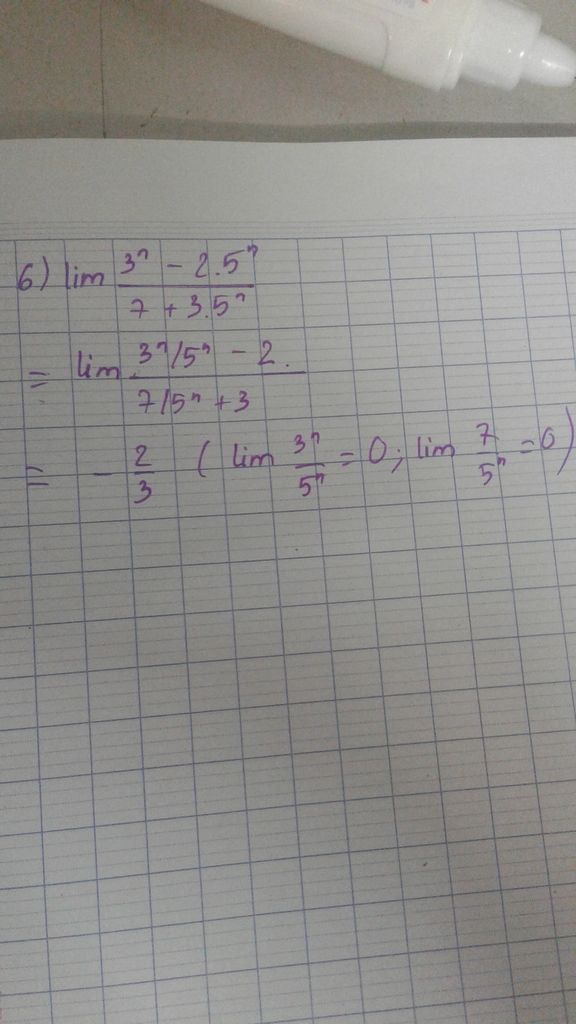 6) lim (3ⁿ - 2.5ⁿ)/(7 + 3.5ⁿ)
= lim (3ⁿ/5ⁿ - 2.)/(7/5ⁿ + 3)
= - 2/3 ( lim 3ⁿ/5ⁿ = 0 ; lim 7/5ⁿ = 0 )